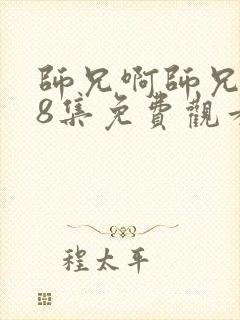 師兄啊師兄
8集免費觀
程太平